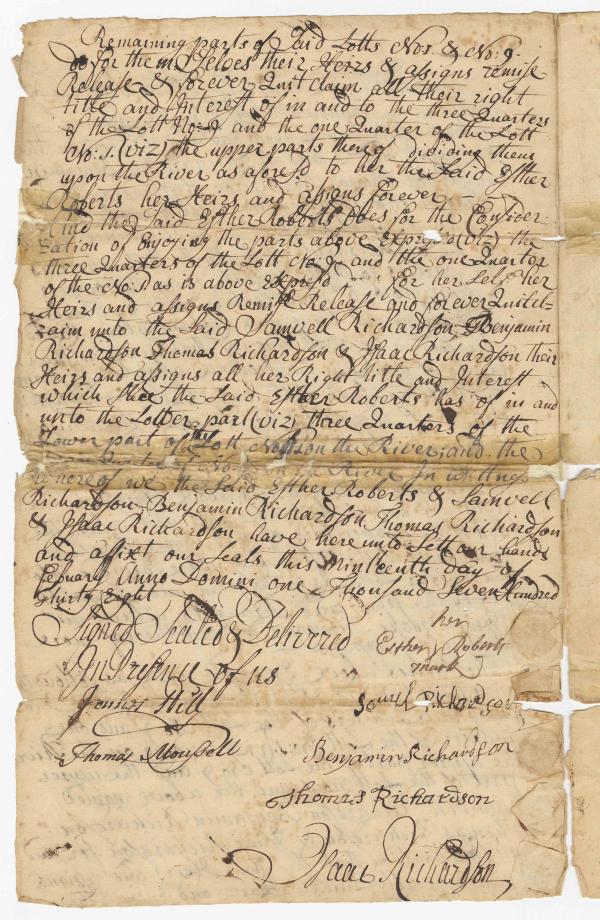 Remaining parts of Said Lotts No: 1 & No: 9
do for them Selves their Heirs & assigns remise
Release & forever Quit claim all their right
title and Interest of in and to the three Quarters
of the Lott No: 9 and the one Quarter of the Lott
No: 1. (viz) the upper parts there of dividing them
upon the River as afores:d to her the Said Esther
Roberts her Heirs and assigns forever
And the Said Esther Roberts does for the Consider-
ration of Enjoying the parts above Expres'd (viz) the
three Quarters of the Lott No: 9 and the one Quarter
of the No: 1 as is above Expres'd for her Self her
Heirs and assigns Remise Release and forever Quitcl-
aim unto the Said Samuell Richardson Benjamin
Richardson Thomas Richardson & Isaac Richardson their
Heirs and assigns all her Right title and Interest
which Shee the Said Esther Roberts has of in and
unto the Lower part (viz) three Quarters of the
Lower part of the Lott No: on the River, and the
Quarter of No: on the River In witness
whereof we the Said Esther Roberts & Samuell
Richardson, Benjamin Richardson Thomas Richardson
& Isaac Richardson have here unto Sett our hands
and affixt our Seals this Ninteenth day of
Febuary Anno Domini one Thousand Seven Hundred
thirty Eight
Signed Sealed & Delivered
In Presence of us
James Hill
Thomas Mousell
her
Esther Roberts
mark
Samuel Richardson
Benjamin Richardson
Thomas Richardson
Isaac Richardson